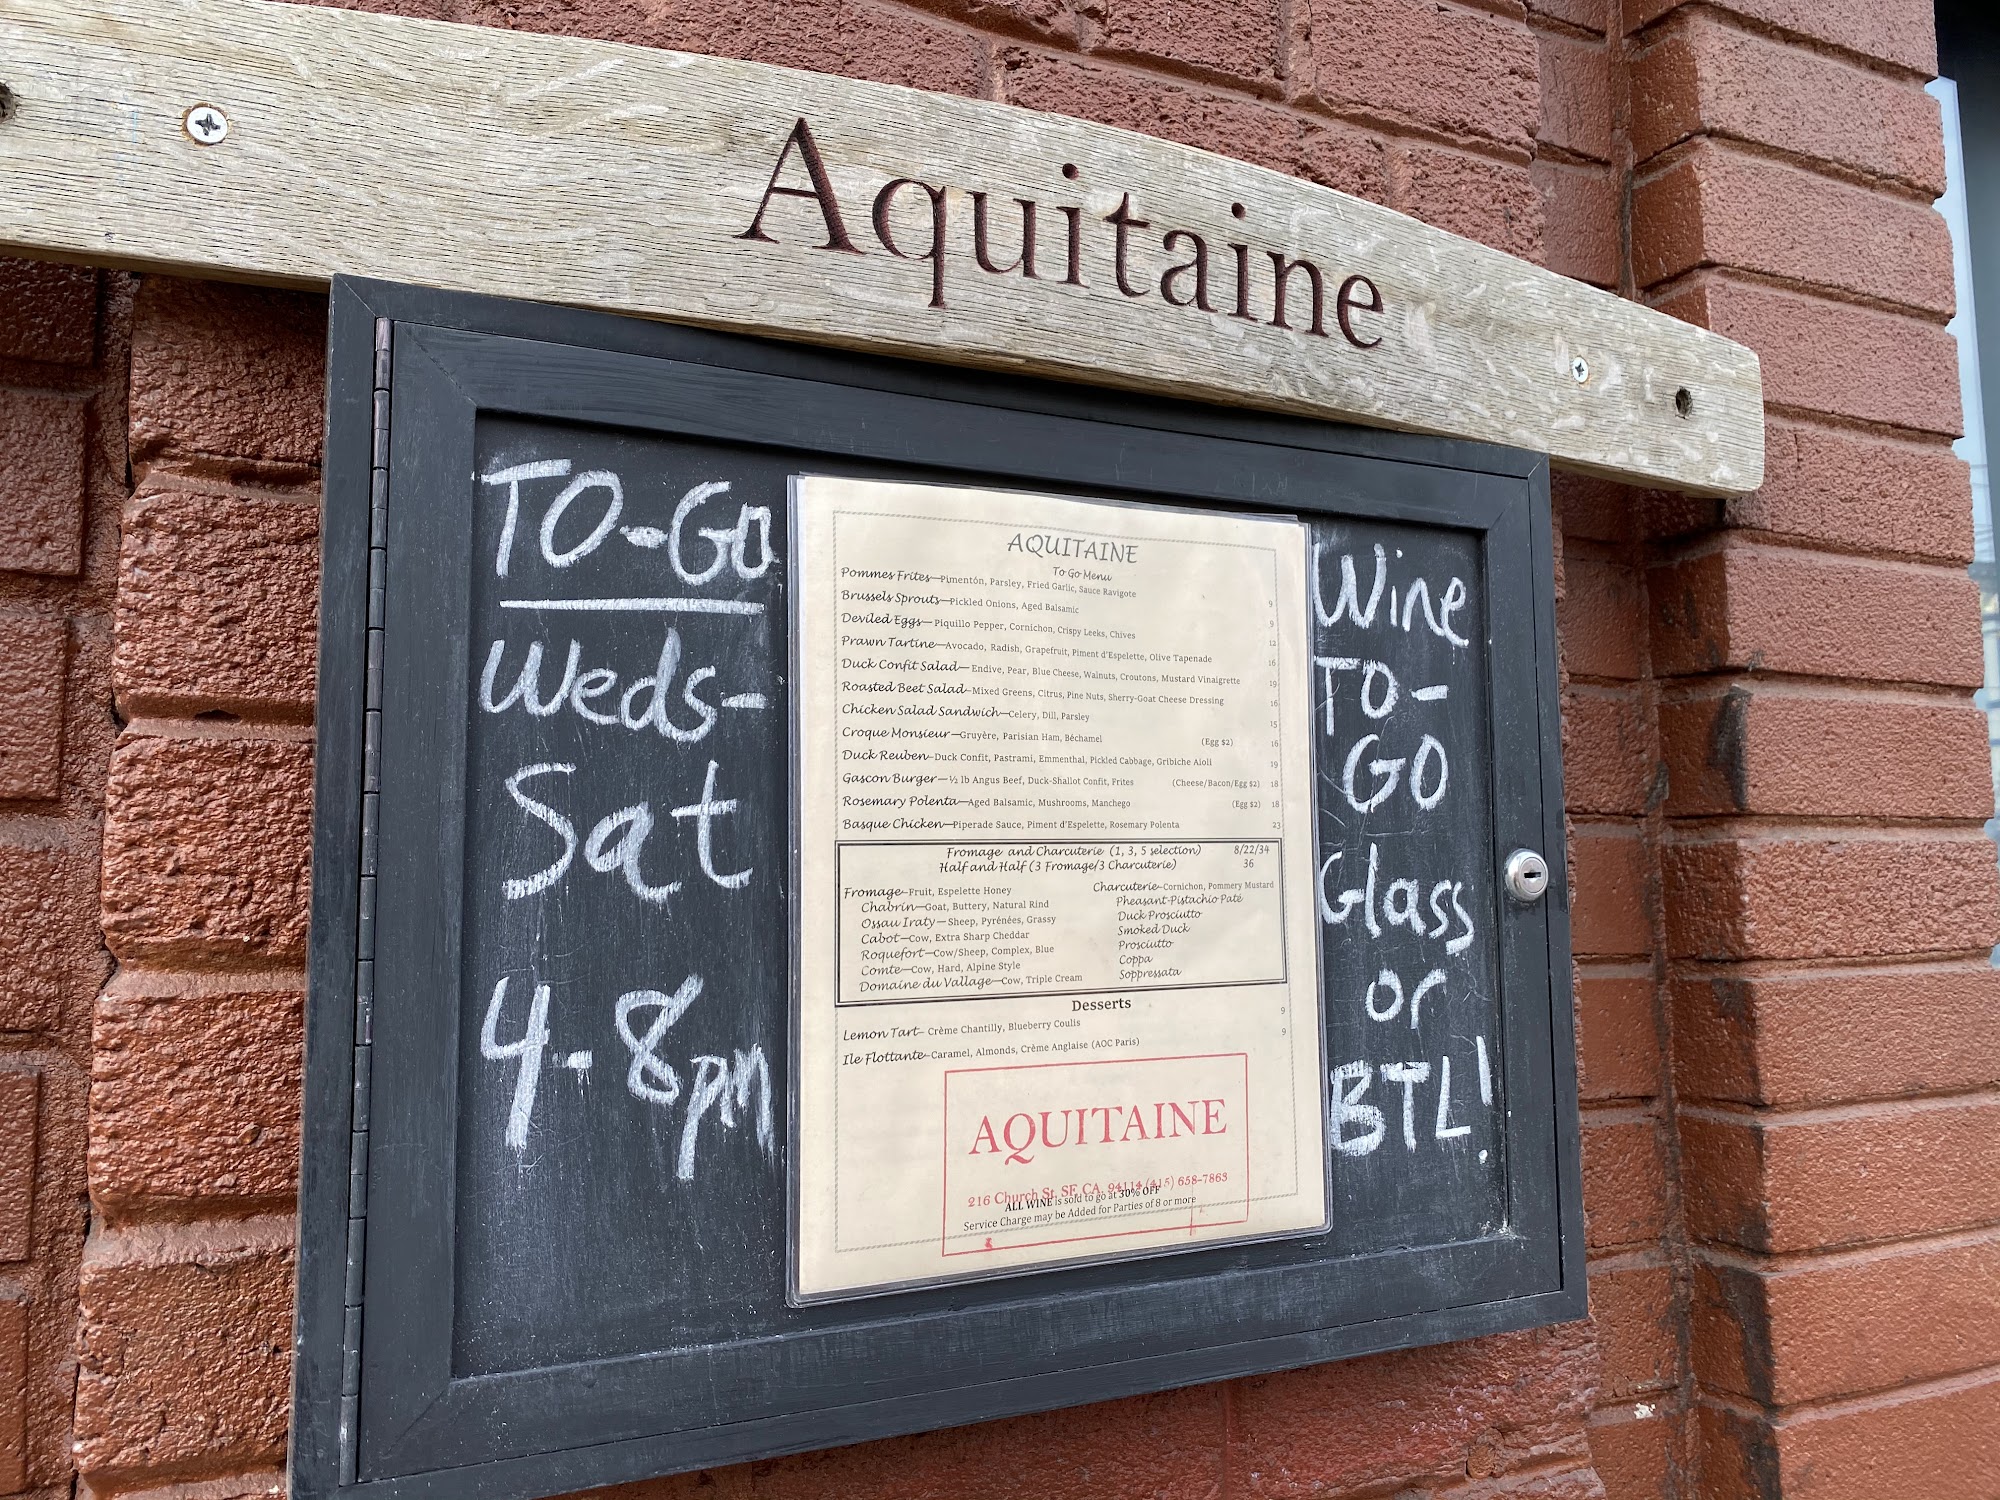 Aquitaine
TO-GO
Weds-
Sat
4-8pm
AQUITAINE
To Go Menu
Pommes Frites—Pimentón, Parsley, Fried Garlic, Sauce Ravigote 9
Brussels Sprouts—Pickled Onions, Aged Balsamic 9
Deviled Eggs— Piquillo Pepper, Cornichon, Crispy Leeks, Chives 12
Prawn Tartine—Avocado, Radish, Grapefruit, Piment d'Espelette, Olive Tapenade 16
Duck Confit Salad— Endive, Pear, Blue Cheese, Walnuts, Croutons, Mustard Vinaigrette 19
Roasted Beet Salad—Mixed Greens, Citrus, Pine Nuts, Sherry-Goat Cheese Dressing 16
Chicken Salad Sandwich—Celery, Dill, Parsley 15
Croque Monsieur—Gruyère, Parisian Ham, Béchamel (Egg $2) 16
Duck Reuben—Duck Confit, Pastrami, Emmenthal, Pickled Cabbage, Gribiche Aioli 19
Gascon Burger—½ lb Angus Beef, Duck-Shallot Confit, Frites (Cheese/Bacon/Egg $2) 18
Rosemary Polenta—Aged Balsamic, Mushrooms, Manchego (Egg $2) 18
Basque Chicken—Piperade Sauce, Piment d'Espelette, Rosemary Polenta 23
Fromage and Charcuterie (1, 3, 5 selection) 8/22/34
Half and Half (3 Fromage/3 Charcuterie) 36
Fromage—Fruit, Espelette Honey
Chabrin—Goat, Buttery, Natural Rind
Ossau Iraty—Sheep, Pyrénées, Grassy
Cabot—Cow, Extra Sharp Cheddar
Roquefort—Cow/Sheep, Complex, Blue
Comte—Cow, Hard, Alpine Style
Domaine du Vallage—Cow, Triple Cream
Charcuterie—Cornichon, Pommery Mustard
Pheasant-Pistachio Paté
Duck Prosciutto
Smoked Duck
Prosciutto
Coppa
Soppressata
Desserts
Lemon Tart— Crème Chantilly, Blueberry Coulis 9
Ile Flottante—Caramel, Almonds, Crème Anglaise (AOC Paris) 9
AQUITAINE
216 Church St, SF, CA, 94114 (415) 658-7863
ALL WINE is sold to go at 30% OFF
Service Charge may be Added for Parties of 8 or more
Wine
TO-
GO
Glass
or
BTL!